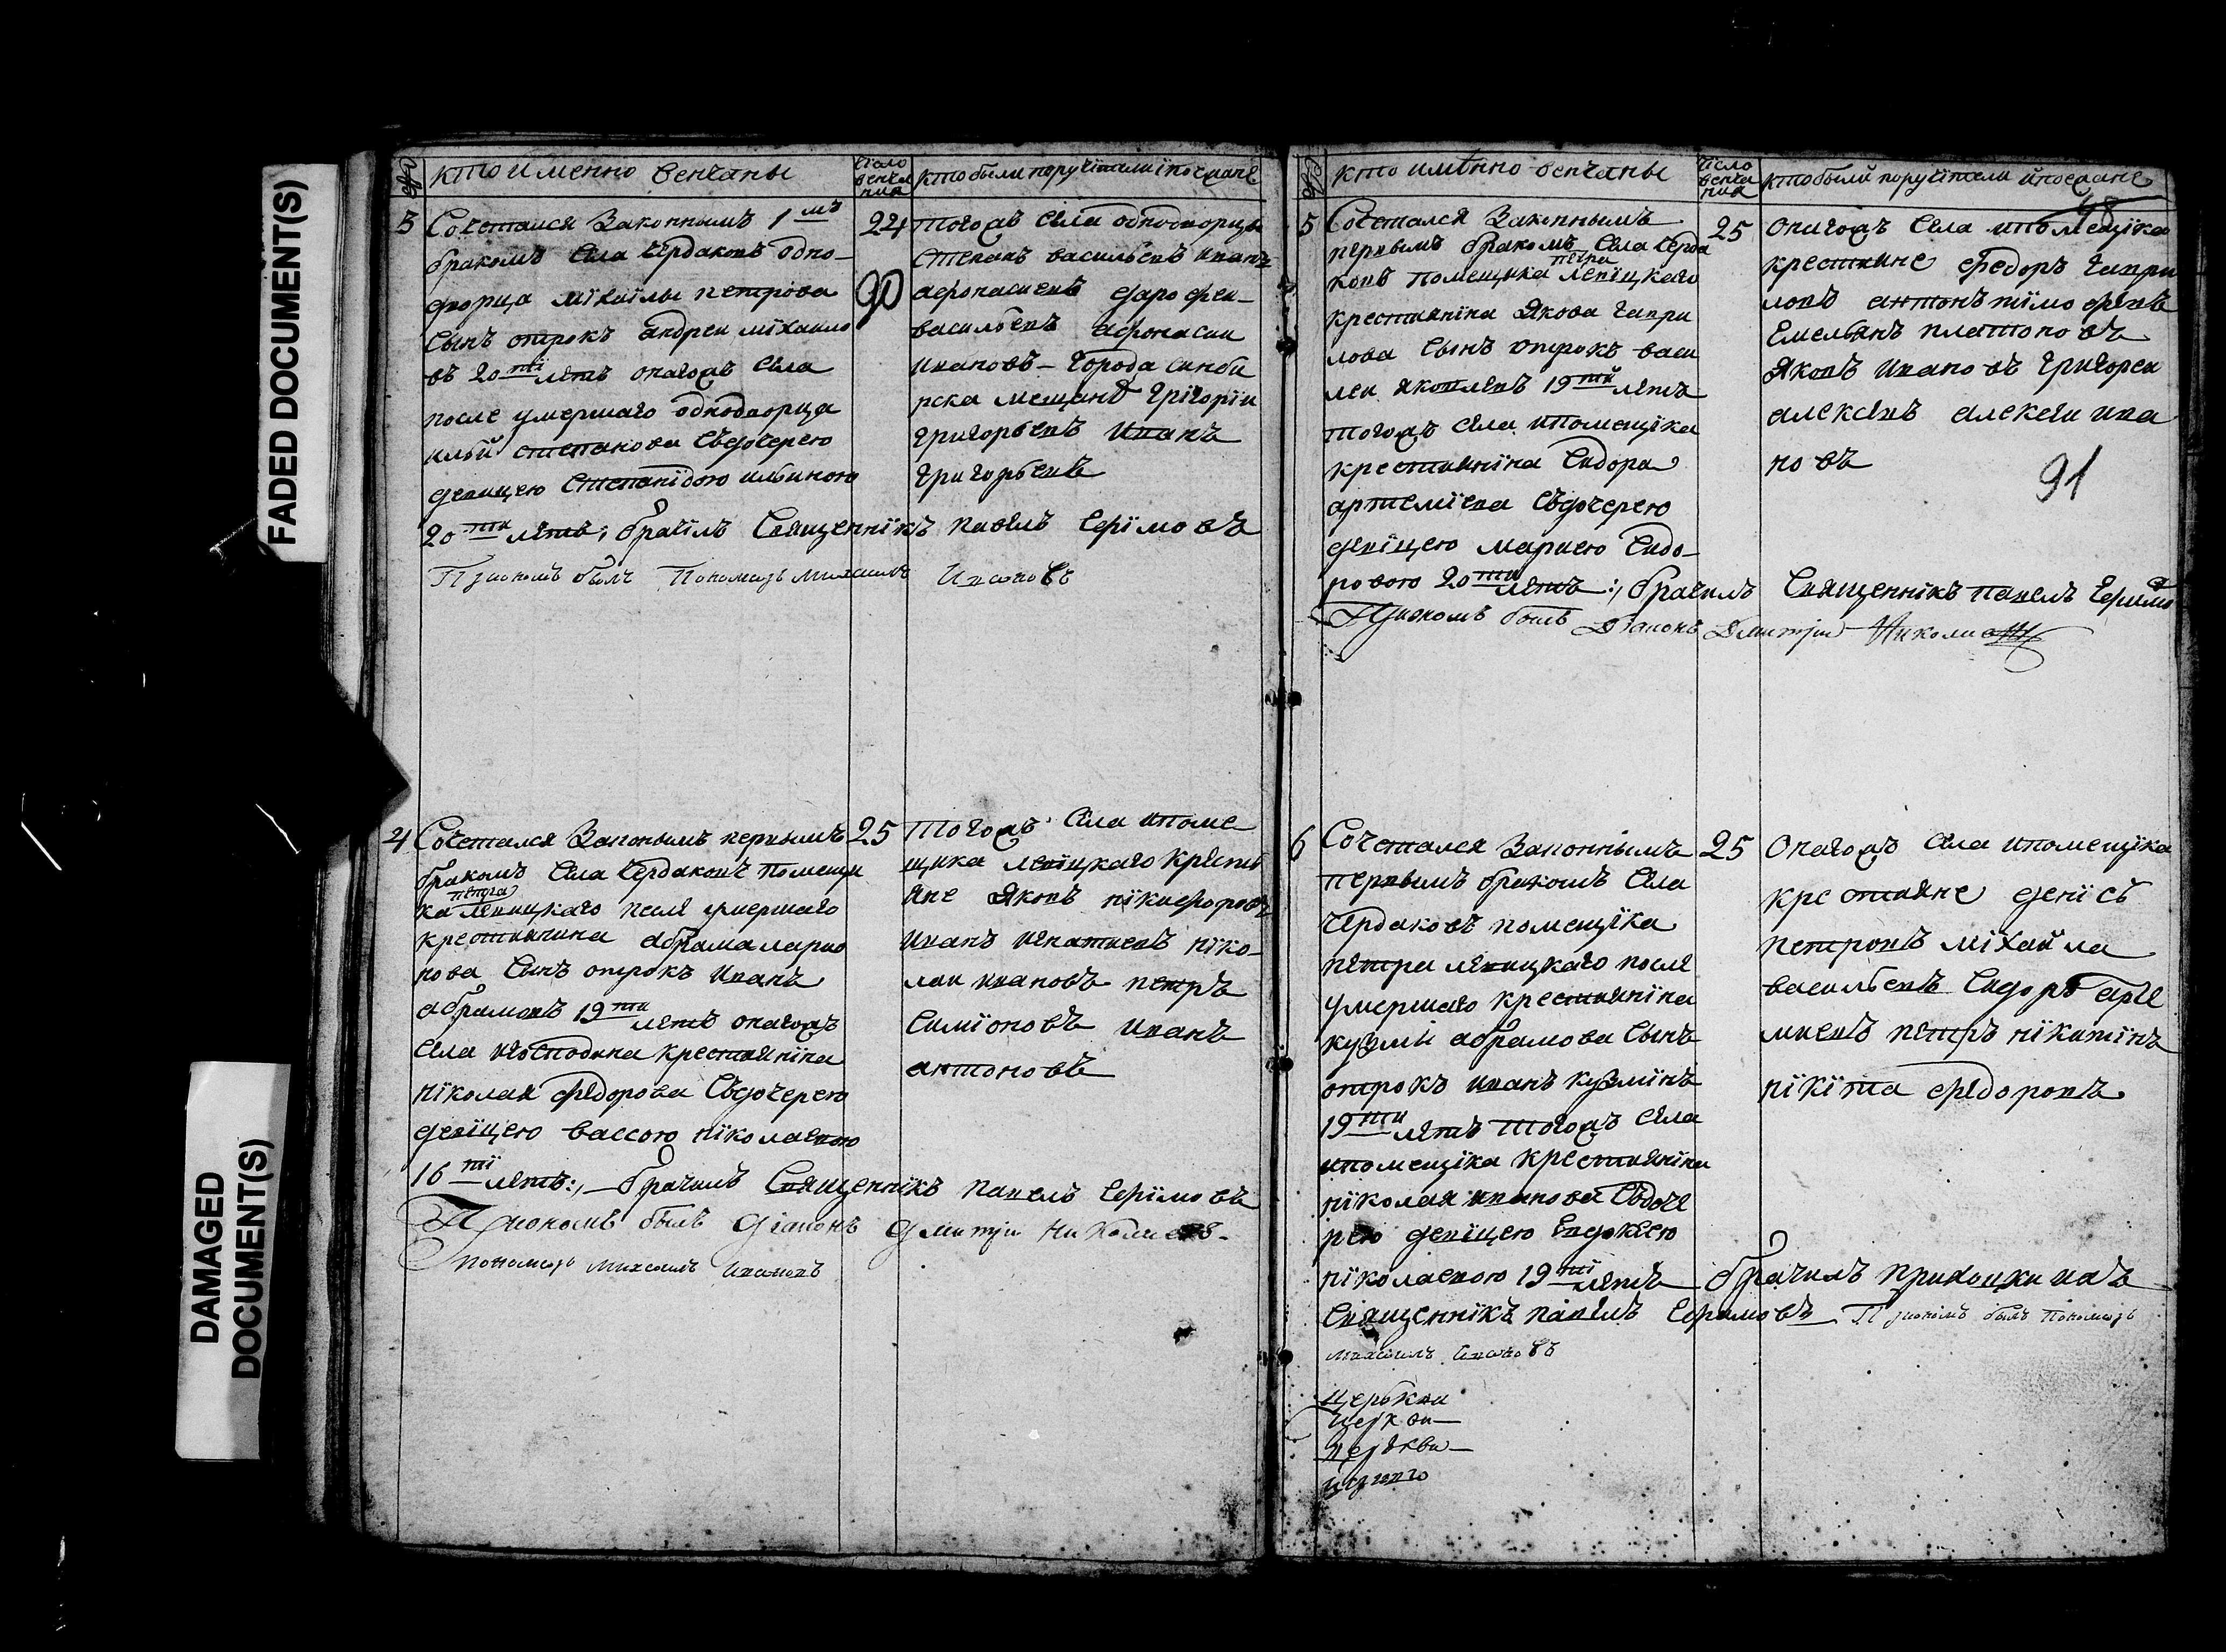 FADED DOCUMENT(S)
DAMAGED
DOCUMENT(S)
кто именно венчаны
число
венча
ния
кто были поручители и поезжане
3
Сочетался Законнымъ 1мъ
бракомъ Села чердаковъ одно-
дворца михаилы петрова
Сынъ отрокъ андреи михаило
въ 20ти летъ онагожъ Села
после умершаго однодворца
ильи степанова Съдочерею
девицею Степанидою ильиною
20ти летъ; брачилъ Священникъ павелъ Ефимовъ
При ономъ былъ Пономарь михаилъ Ивановъ
24
90
тогожъ Села однодворцы
Степанъ васильевъ иванъ
афонасиевъ дарофеи
васильевъ афонасии
ивановъ - города синби
рска мещане григории
григорьевъ Иванъ
григорьевъ
4
Сочетался Законымъ первымъ
бракомъ Села чердаковъ помещи
ка петра левицкаго после умершаго
крестьянина абрама ларио
нова Сынъ отрокъ Иванъ
абрамовъ 19ти летъ онагожъ
Села игосподина крестьянина
николая федорова Съдочерею
девицею вассою николаевою
16ти летъ:, брачилъ Священникъ Павелъ Ефимовъ
При ономъ былъ діаконъ дмитри Николаевъ
пономарь михаилъ Ивановъ
25
тогожъ Села ипоме
щика левицкаго кресть
яне яковъ никифоровъ
иванъ игнатиевъ нико-
лаи ивановъ петръ
Симионовъ иванъ
антоновъ
кто именно венчаны
число
венча
ния
кто были поручители и поезжане
5
Сочетался Законнымъ
первымъ бракомъ Села черда
ковъ помещика петра левицкаго
крестьянина Якова гаври
лова Сынъ отрокъ васи
леи яковлевъ 19ти летъ
тогожъ села ипомещика
крестьянина Сидора
артемиева Съдочерею
девицею мариею Сидо-
ровою 20ти летъ:, брачилъ Священникъ павелъ Ефимо
При ономъ былъ Діаконъ Дмитри Николаевъ
25
онагожъ Села ипомещика
крестьяне федоръ гаври
ловъ антонъ тимофеевъ
Емельянъ платоновъ
яковъ ивановъ григореи
алексеевъ алексеи ива
новъ
91
6
Сочетался Законнымъ
первымъ бракомъ Села
чердаковъ помещика
петра левицкаго после
умершаго крестьянина
кузмы абрамова Сынъ
отрокъ иванъ кузминъ
19ти летъ тогожъ Села
ипомещика крестьянина
николая иванова Съдоче
рею девицею Евдокеею
николаевою 19ти летъ брачилъ
Священникъ павелъ Ефимовъ При ономъ былъ пономарь
михаилъ Ивановъ
25
онагожъ Села ипомещика
крестьяне денисъ
петровъ михаила
васильевъ Сидоръ арте
миевъ петръ никитинъ
никита федоровъ
церькви
церкви